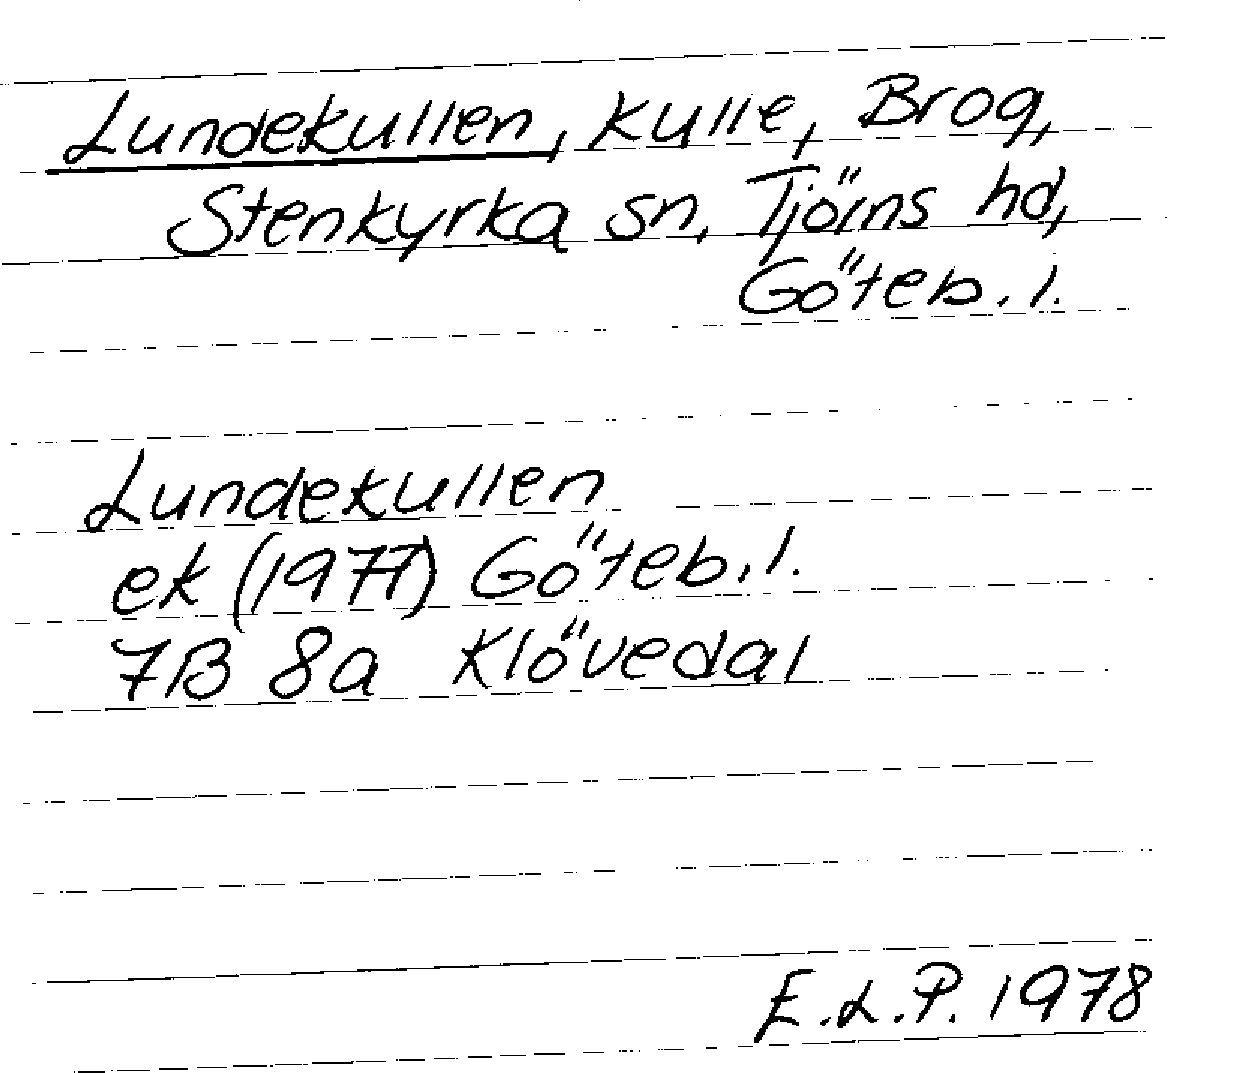 Lundekullen, kulle, Broq,
Stenkyrka sn, Tjörns hd,
Göteb. l.
Lundekullen
ek (1977) Göteb. l.
7B 8a Klövedal
E.L.P. 1978